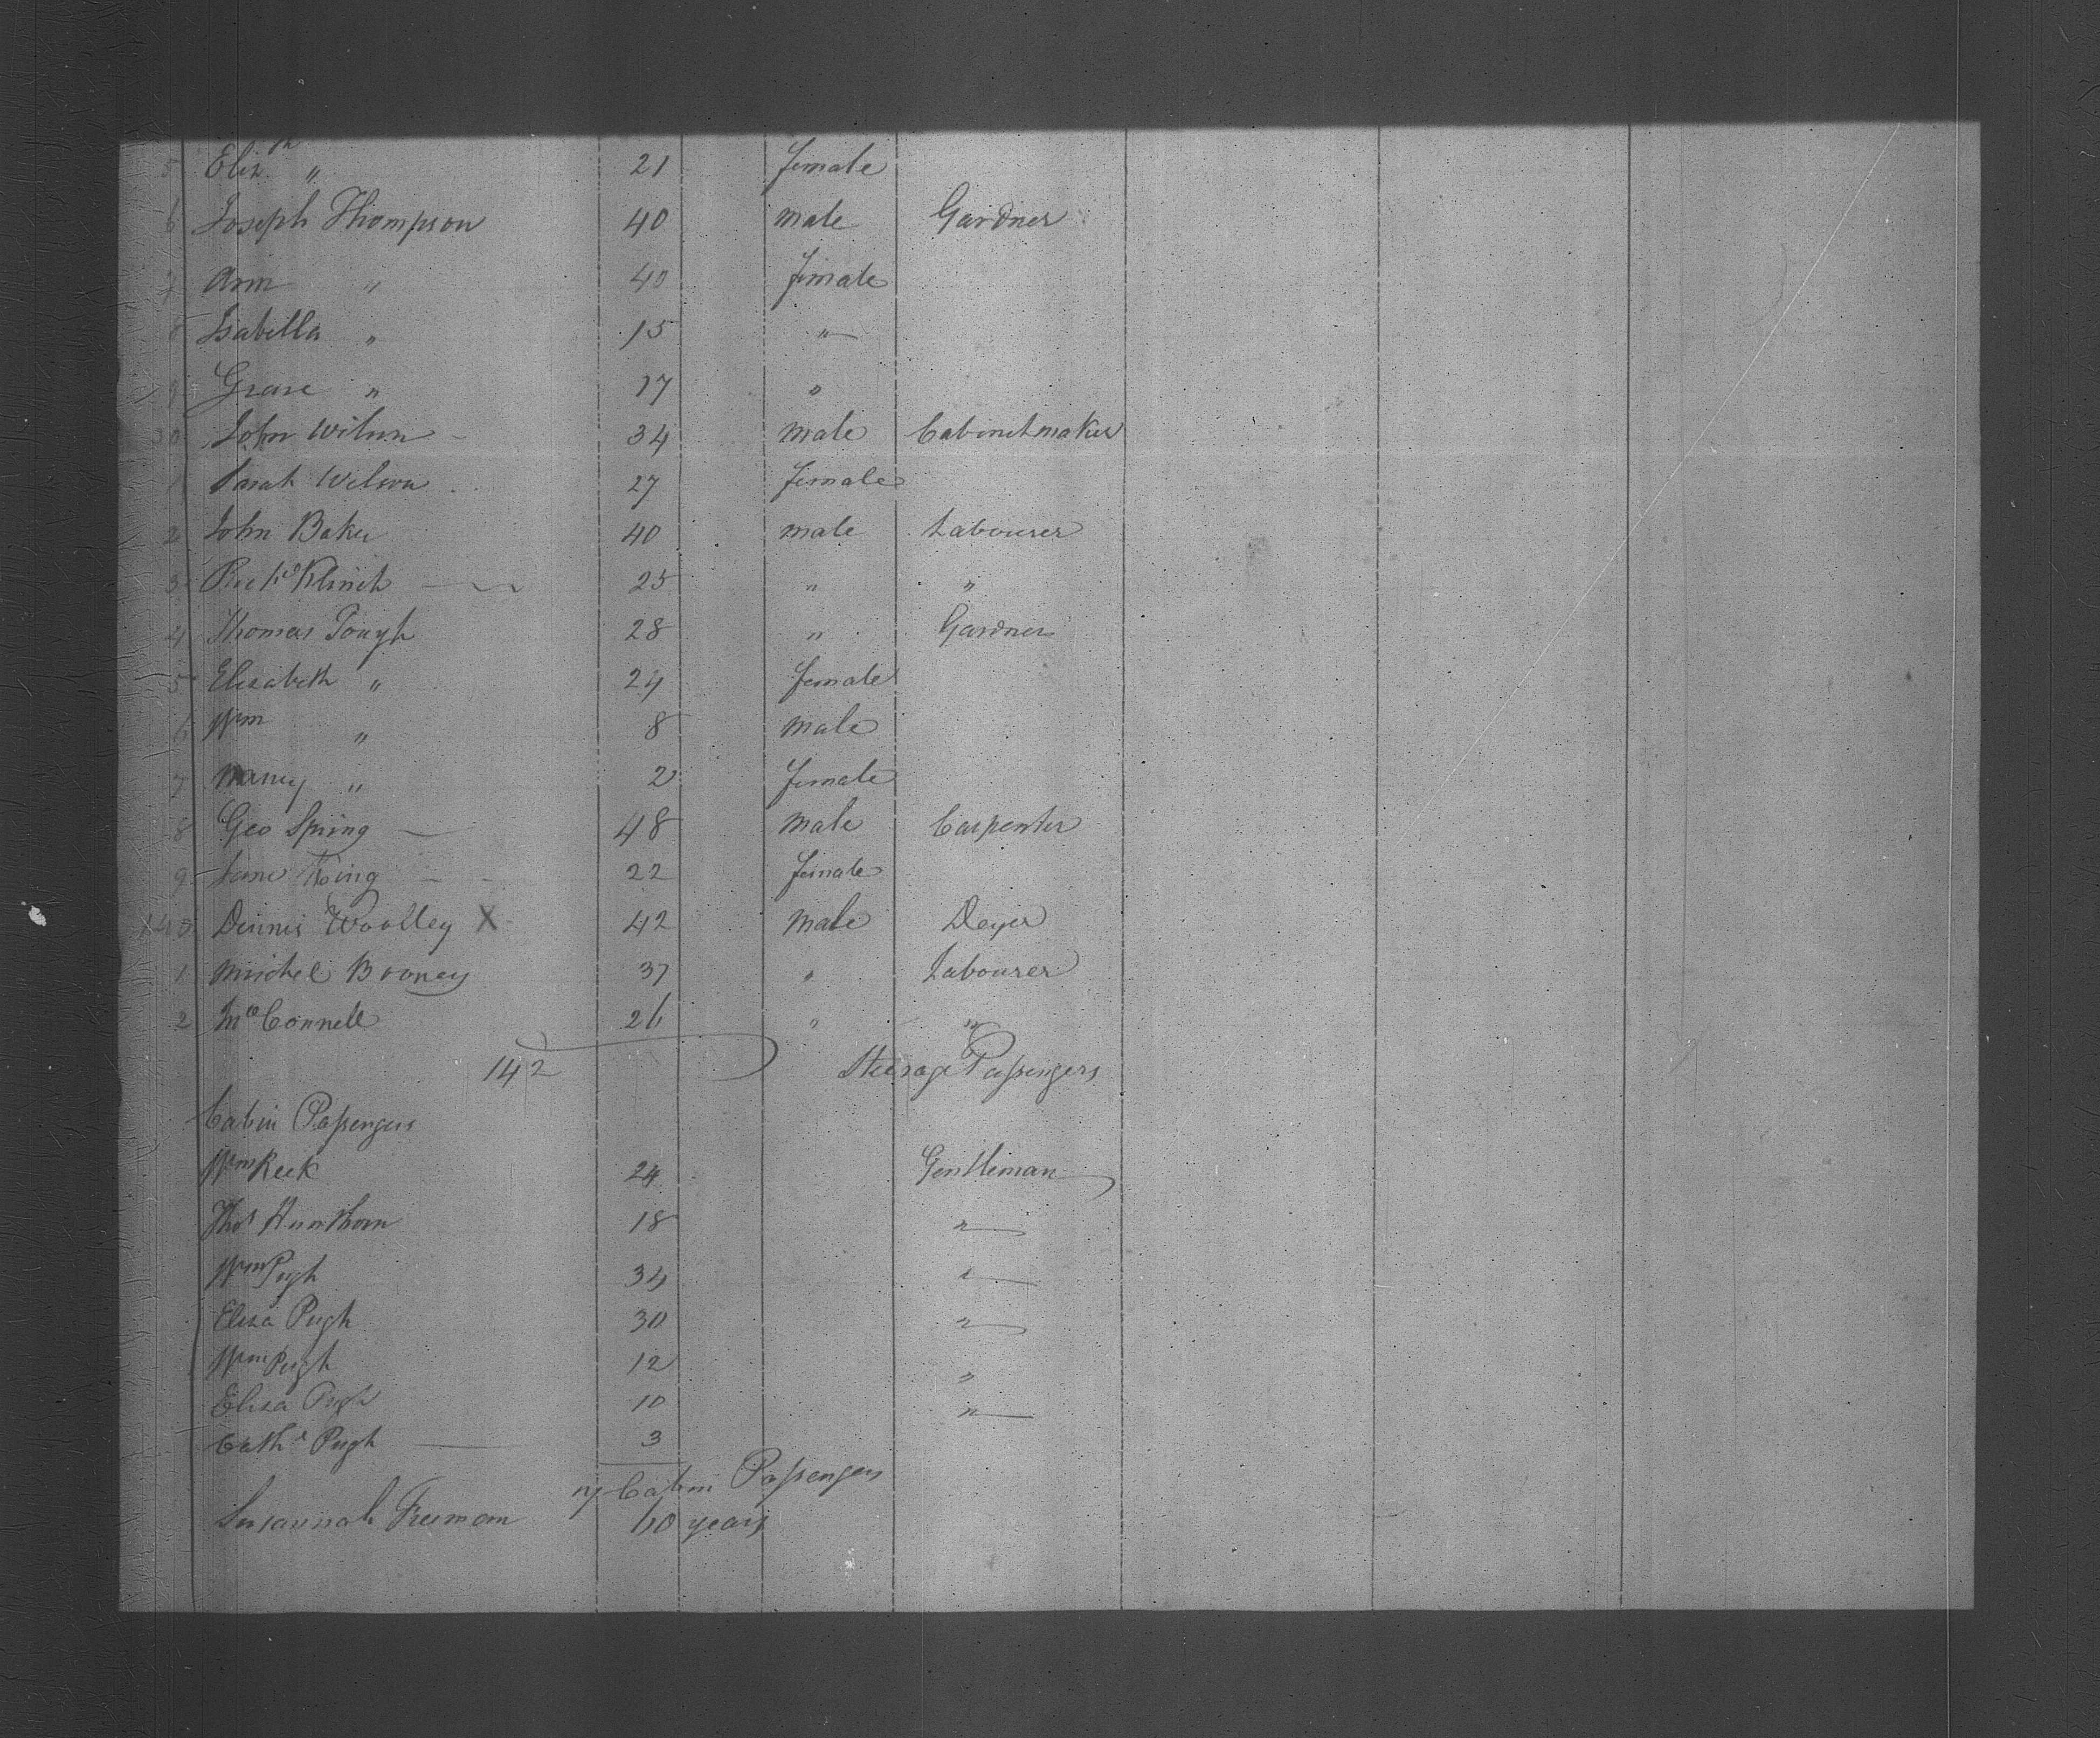 5 Elizth " 21 female
6 Joseph Thompson 40 male Gardner
7 Ann " 40 female
8 Isabella " 15 "
9 Grace " 17 "
30 John Wilson 34 male Cabinetmaker
1 Sarah Wilson 27 female
2 John Baker 40 male Labourer
3 Klinch 25 " "
4 Thomas Tough 28 " Gardner
5 Elisabeth " 24 female
6 Wm " 8 male
7 Nancy " 2 female
8 Geo Spring 48 male Carpenter
9 Jane King 22 female
140 Dennis Woolley X 42 male Deyer
1 Michel Booney 37 " Labourer
2 McConnell 26 " "
142 Steerage Passengers
Cabin Passengers
Wm Reek 24 Gentleman
Thos 18 "
Wm Pugh 34 "
Eliza Pugh 30 "
Wm Pugh 12 "
Eliza Pugh 10 "
Cathe Pugh 3
7 Cabin Passengers
Susannah Freeman 60 years